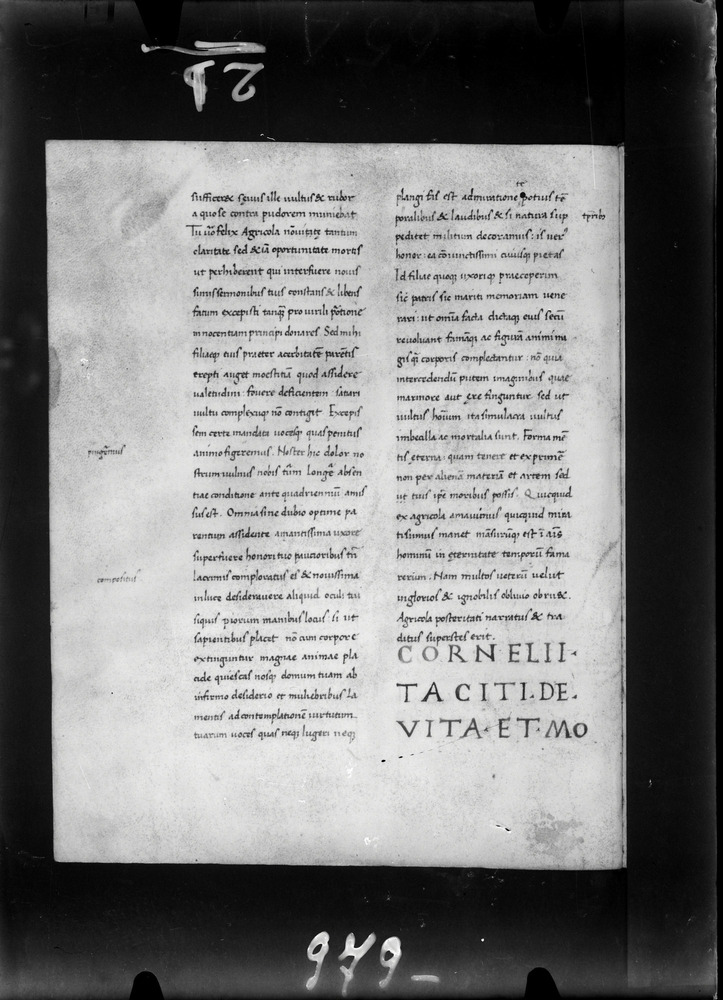 sufficeret sęuus ille uultus & rubor
a quo se contra pudorem muniebat
Tu uo felix Agricola nō uitęte tantum
claritate sed &iā oportunitate mortis
ut perhiberent qui interfuere nouis
simis sermonibus tuis constans & libens
fatum excepisti tanq̄ pro uirili portione
innocentiam principi donares Sed mihi
filiaeq; tuis praeter acerbitatē parētis
erepti auget moestitiā quod assidere
ualetudini fouere deficientem satiari
uultu complexuq; nō contigit Excepis
sem certe mandata uocesq; quas penitus
animo figeremus. Noster hic dolor no
strum uulnus nobis tām longę absen
tiae conditione ante quadriennium amis
sus est. Omnia sine dubio optime pa
rentum assidente amantissima uxore
superfuere honori tuo paucioribus tn̄
lacrimis comploratus es & nouissima
in luce desiderauere aliquid oculi tui
siquis piorum manibus locus si ut
sapientibus placet nō cum corpore
extinguntur magnae animae pla
cide quiescas nosq; domum tuam ab
infirmo desiderio et muliebribus la
mentis ad contemplationē uirtutum
tuarum uoces quas neq; lugeri neq;
pingēmus
compositus
plangi fas est admiratione potius tē
poralibus & laudibus & si natura sup
peditet militum decoramus: is uer9
honor ea cōiunctissimi cuiusq; pietas
Id filiae quoq; uxoriq; praeceperim
sic patris sic mariti memoriam uene
rari: ut omīa facta dictaq; eius secū
reuoluant famāq; ac figurā animi ma
gis q̄ corporis complectantur: nō quia
intercedendū putem imaginibus quae
marmore aut ęre finguntur sed ut
uultus hoīum ita simulacra uultus
imbecilla ac mortalia sunt. Forma mē
tis ęterna: quam tenere et exprimē
non per alienā materiā et artem sed
ut tuis ipē moribus possis. Quicquid
ex agricola amauimus quicquid mira
ti sumus manet māsurūq; est ī aīs
hominū in ęternitate temporū fama
rerum. Nam multos ueterū uelut
inglorios & ignobilis obliuio obru&.
Agricola posteritati narratus & tra
ditus superstes erit.
CORNELII·
TACITI·DE·
VITA·ET·MO
979